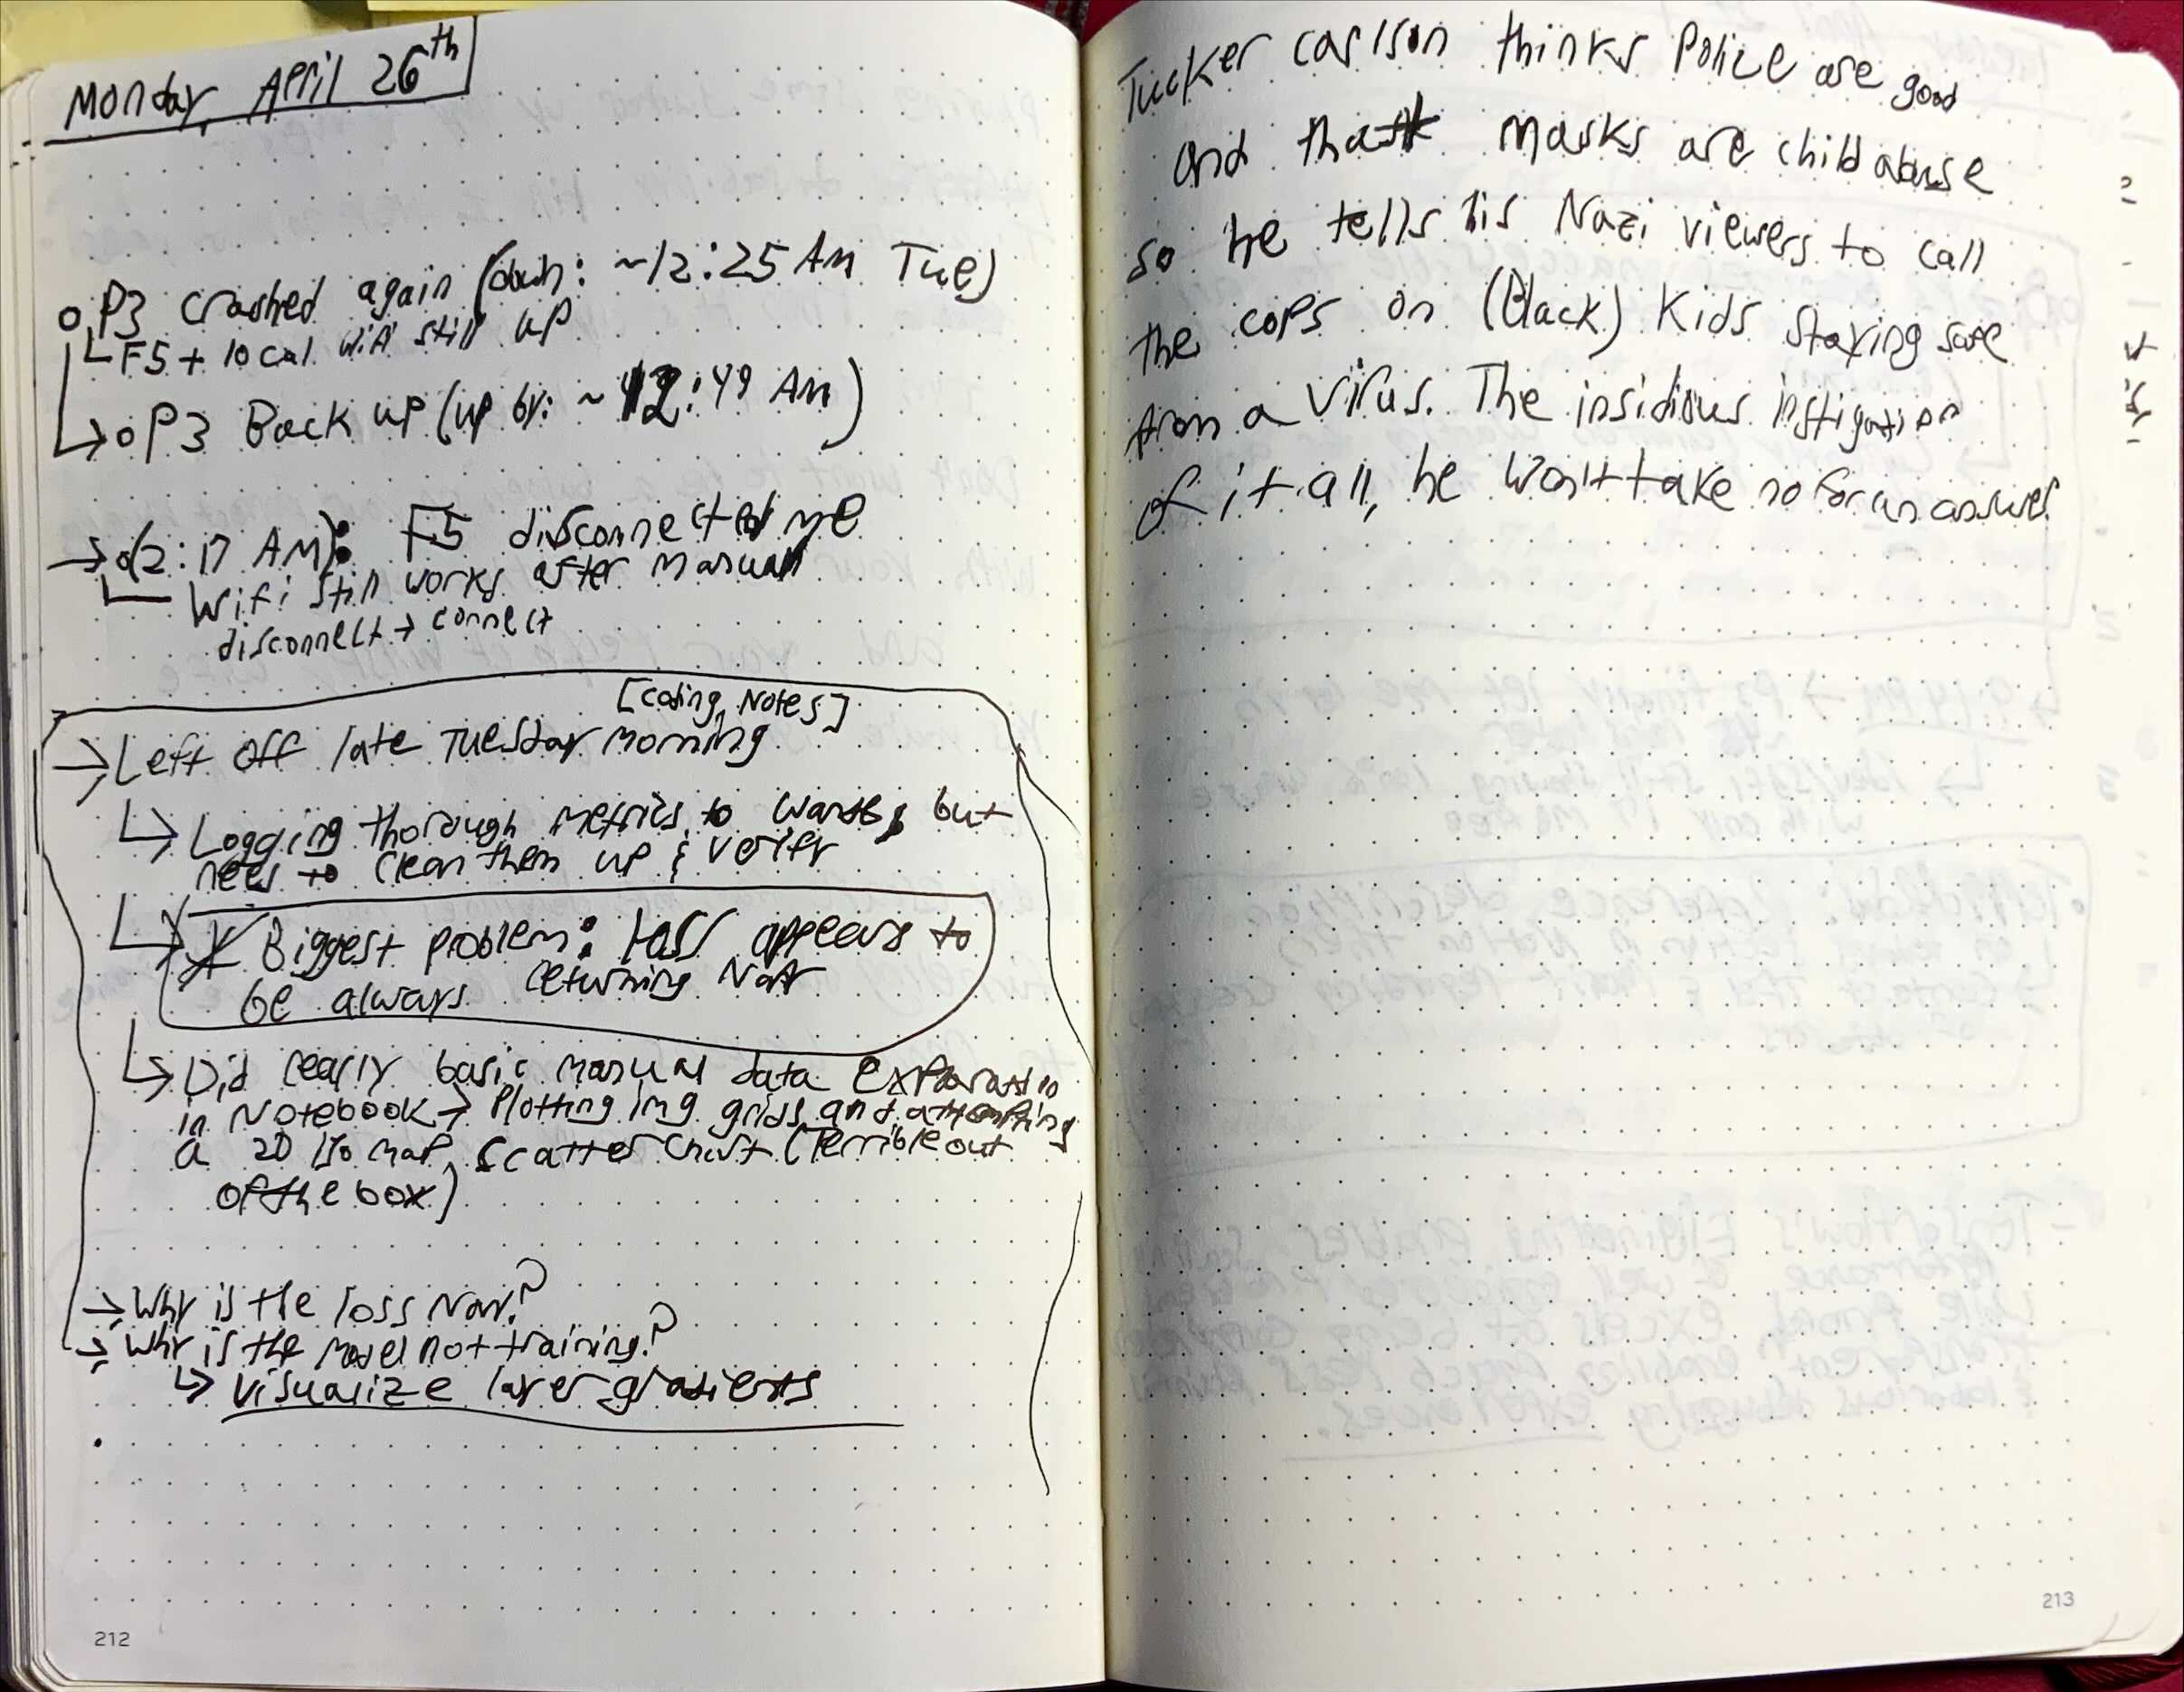 Monday, April 26th
P3 crashed again (down: ~12:25 AM Tue)
F5 + local wifi still up
P3 Back up (up by: ~12:49 AM)
(2:17 AM): F5 disconnected me
Wifi still works after manual
disconnect → connect
[Coding Notes]
Left off late Tuesday morning
Logging thorough metrics to wandb, but
need to clean them up & verify
Biggest problem: loss appears to
be always returning NaN
Did really basic manual data exploration
in Notebook → Plotting img grids and attempting
a 2D Isomap scatter chart (Terrible out
of the box)
→ Why is the loss Nan?
→ Why is the model not training?
↳ Visualize layer gradients
212
Tucker carlson thinks Police are good
and that masks are child abuse
so he tells his Nazi viewers to call
the cops on (Black) Kids staying safe
from a Virus. The insidious instigation
of it all, he won't take no for an answer
213